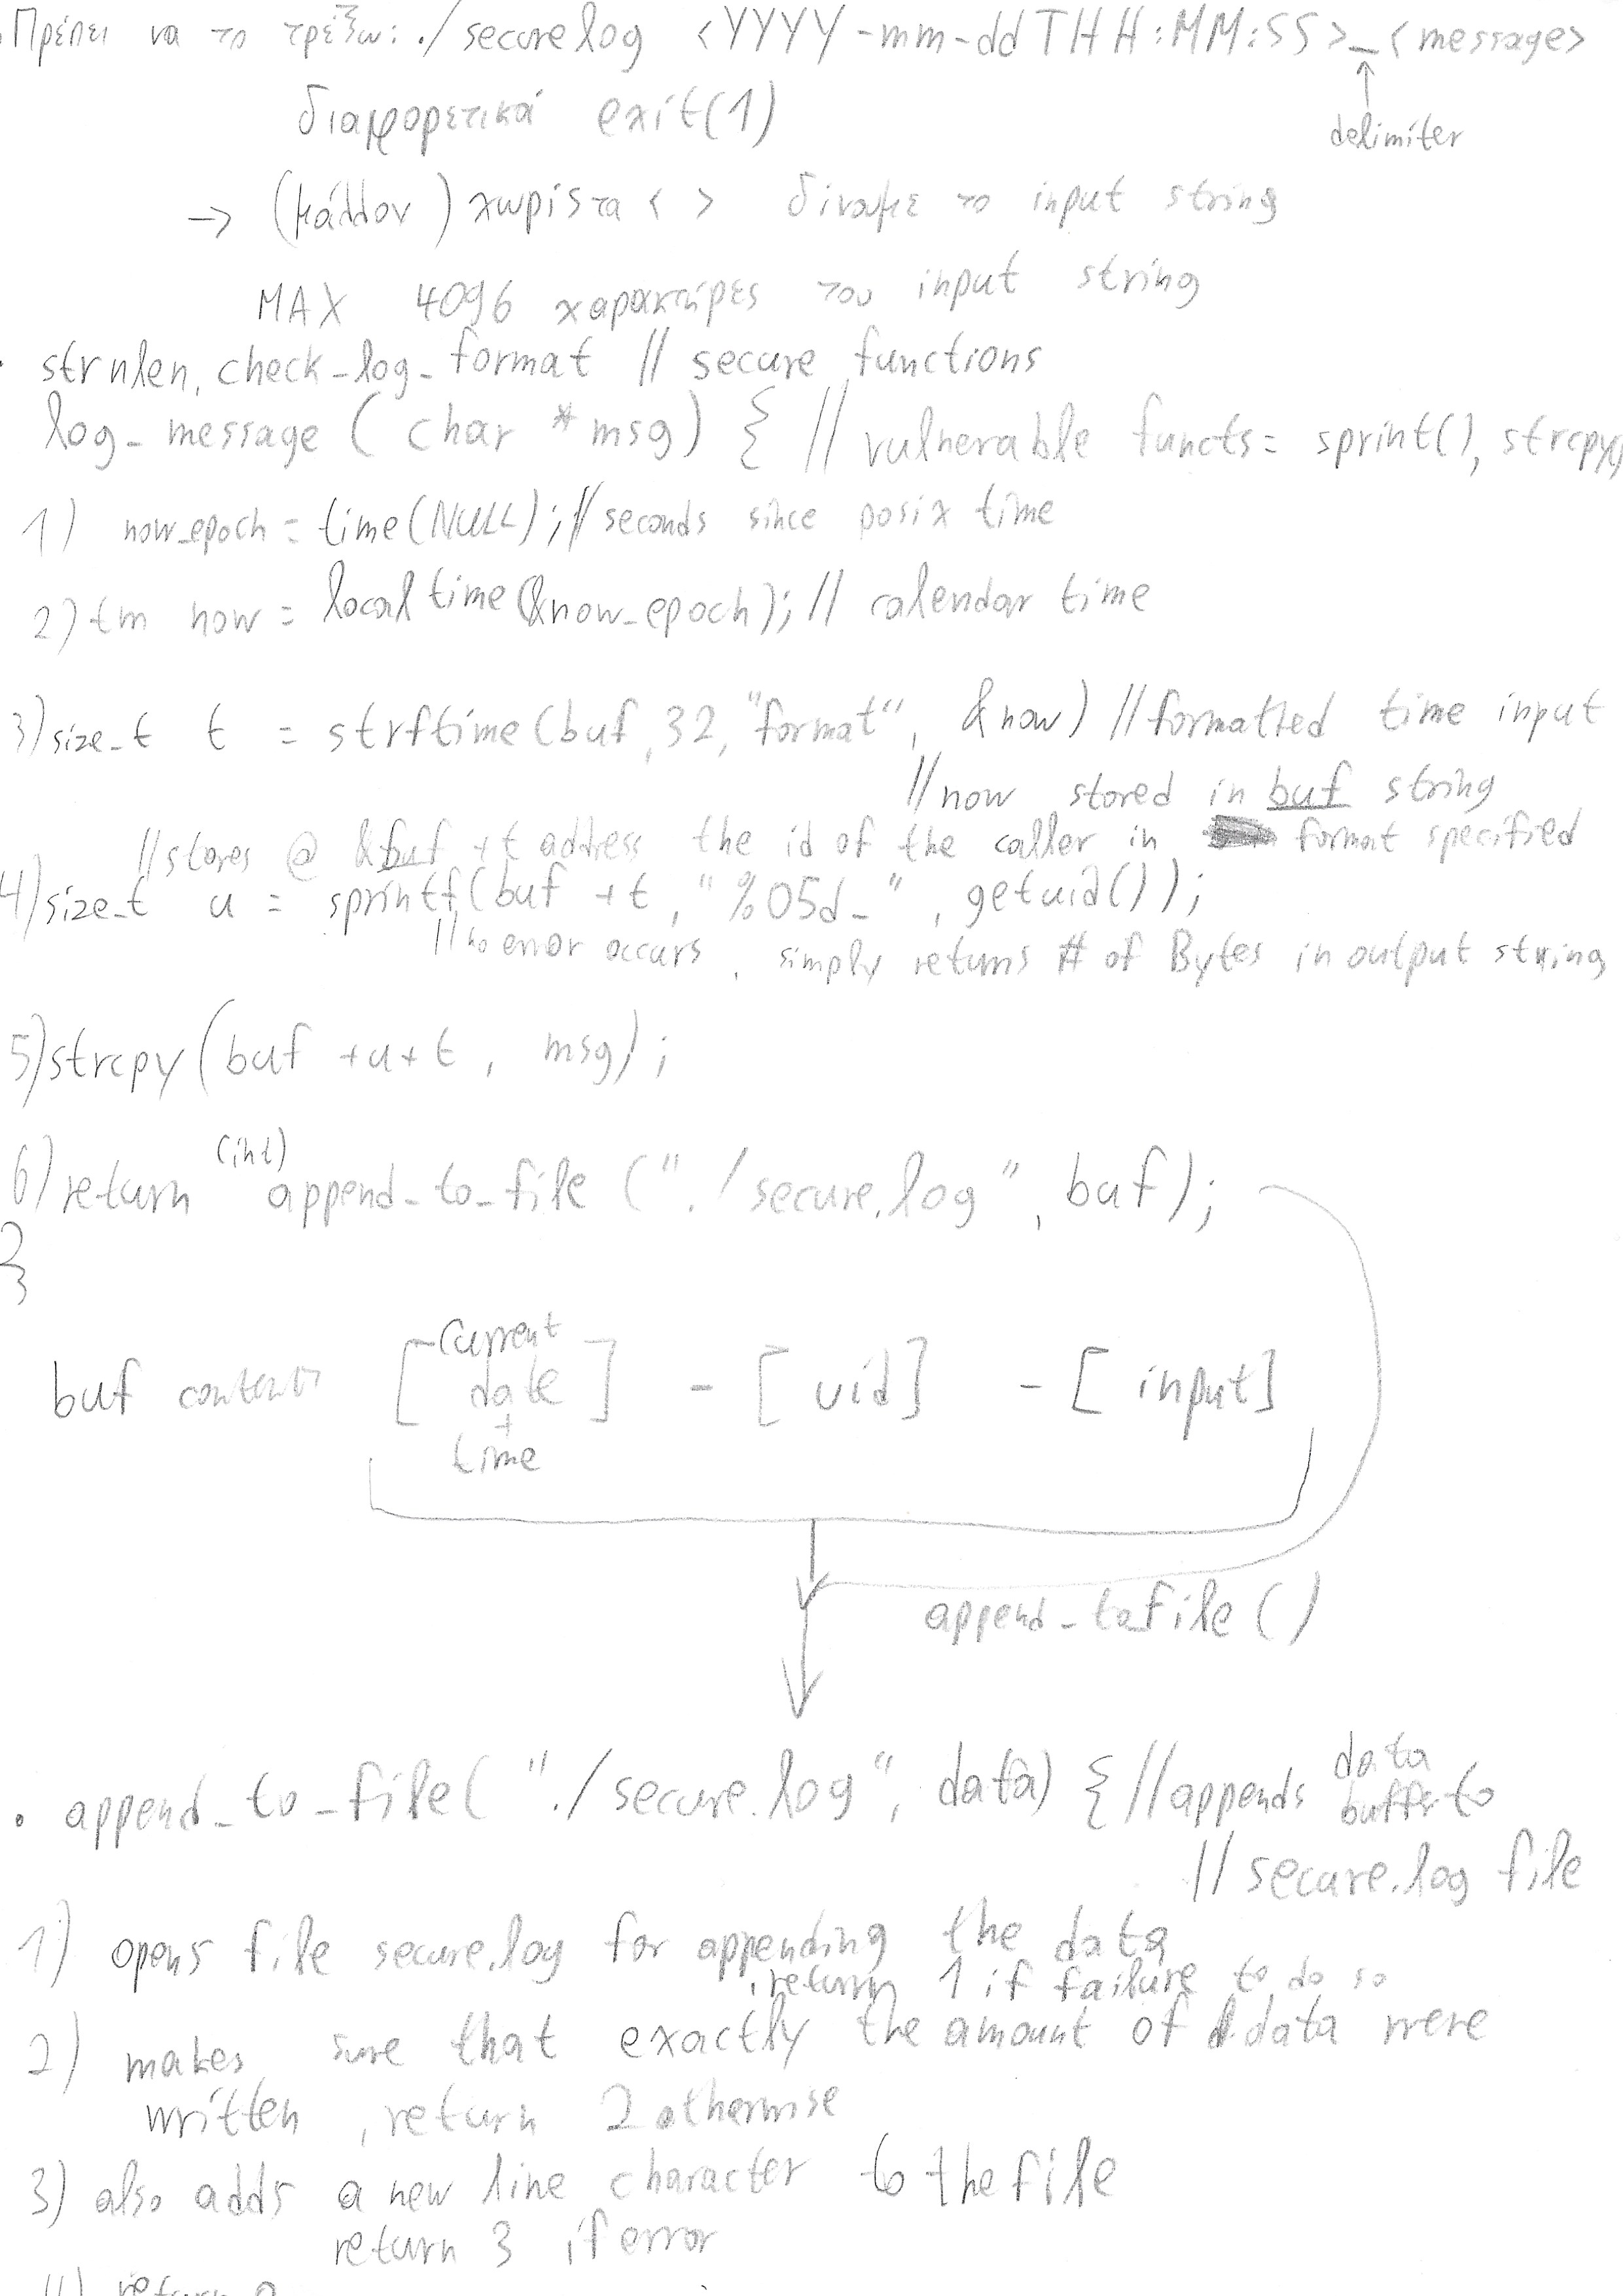 . Πρέπει να το τρέξω: ./securelog <YYYY-mm-ddTHH:MM:SS>_<message>
διαφορετικά exit(1)
delimiter
→ (μάλλον) χωρίς τα < > δίνουμε το input string
MAX 4096 χαρακτήρες του input string
· strnlen, check_log_format // secure functions
log_message ( char *msg) { // vulnerable functs = sprint(), strcpy()
1) now_epoch = time(NULL); // seconds since posix time
2) tm now = localtime(&now_epoch); // calendar time
3) size_t t = strftime(buf, 32, "format", &now) // formatted time input
// now stored in buf string
// stores @ &buf +t address the id of the caller in format specified
4) size_t u = sprintf(buf +t, "%05d_", getuid());
// no error occurs, simply returns # of Bytes in output string
5) strcpy(buf +u+t, msg);
(int)
6) return append_to_file ("./secure.log", buf);
}
buf content [current date + time] - [uid] - [input]
append_to_file()
· append_to_file("./secure.log", data) { // appends data buffer to
// secure.log file
1) opens file secure.log for appending the data
, return 1 if failure to do so
2) makes sure that exactly the amount of data were
written, return 2 otherwise
3) also adds a new line character to the file
return 3 if error
4) return